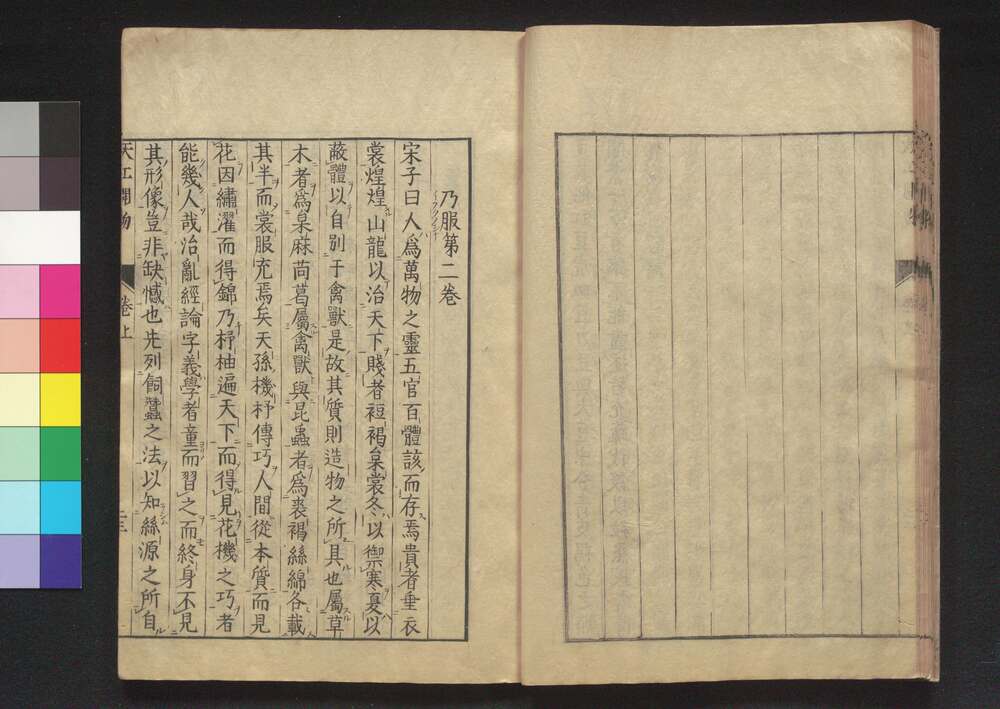 乃服第二卷
宋子曰人爲萬物之靈五官百體該而存焉貴者垂衣
裳煌煌山龍以治天下賤者裋褐枲裳冬以禦寒夏以
蔽體以自別于禽獸是故其質則造物之所具也屬草
木者爲枲麻苘葛屬禽獸與昆蟲者爲裘褐絲綿各載
其半而裳服充焉矣天孫機杼傳巧人間從本質而見
花因繡濯而得錦乃杼柚遍天下而得見花機之巧者
能幾人哉治亂經論字義學者童而習之而終身不見
其形像豈非缺憾也先列飼蠶之法以知絲源之所自
天工開物
卷上